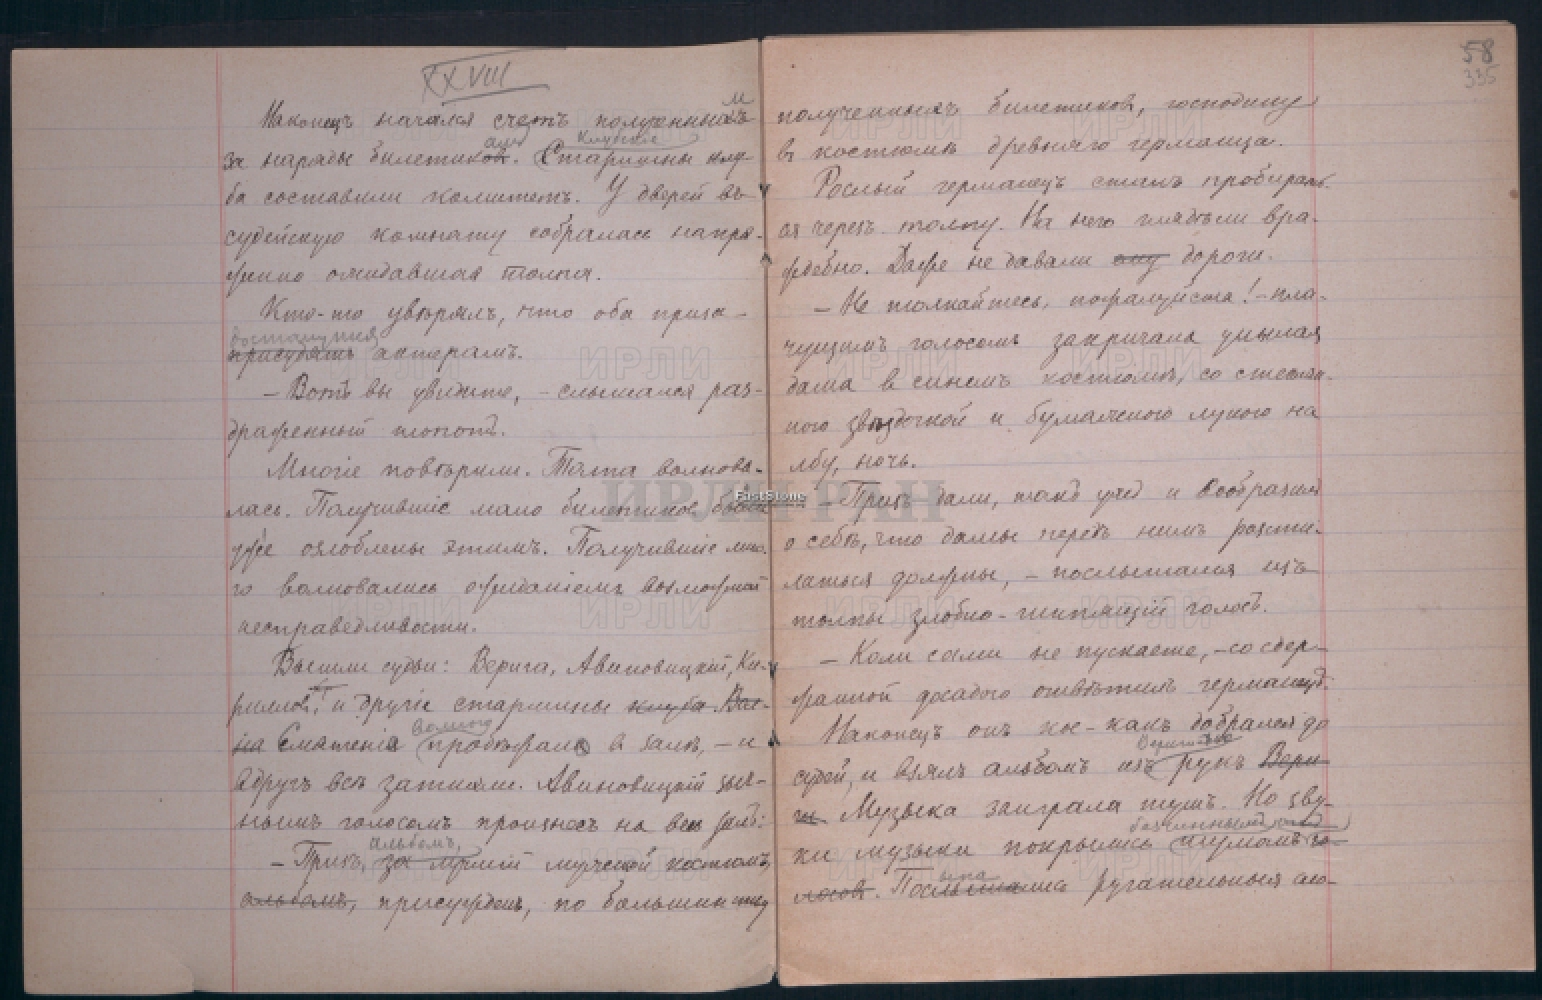 XXVIII
Наконецъ начался счетъ полученныхъ м
за наряды билетиковъ. ами Старшины клу- клубные
ба составили комитетъ. У дверей въ
судейскую комнату собралась напря-
женно ожидавшая толпа.
Кто-то увѣрялъ, что оба приза-
достанутся
присудятъ актерамъ.
– Вотъ вы увидите, – слышался раз-
драженный шопотъ.
Многіе повѣрили. Толпа волнова-
лась. Получившіе мало билетиковъ были
уже озлоблены этимъ. Получившіе мно-
го волновались ожиданіемъ возможной
несправедливости.
Вышли судьи: Верига, Авиновицкій, Ки-
рилловъ, и другіе старшины клуба. Вол-
на смятенія волною пробѣжала в залѣ, – и
вдругъ всѣ затихли. Авиновицкій зыч-
нымъ голосомъ произнесъ на весь залъ:
альбомъ,
– Призъ, за лучшій мужской костюмъ,
альбомъ, присужденъ, по большинству
58
335
полученныхъ билетиковъ, господину
въ костюмѣ древняго германца.
Рослый германецъ сталъ пробирать-
ся черезъ толпу. На него глядѣли вра-
ждебно. Даже не давали ему дороги.
– Не толкайтесь, пожалуйста! – пла-
чущимъ голосомъ закричала унылая
дама в синемъ костюмѣ, со стеклян-
ною звѣздочкой и бумажною луною на
лбу, ночь.
– Призъ дали, такъ ужъ и вообразилъ
о себѣ, что дамы передъ нимъ разсти-
латься должны, – послышался изъ
толпы злобно-шипящій голосъ.
– Коли сами не пускаете, – со сдер-
жанной досадою отвѣтилъ германецъ.
Наконецъ онъ кое-какъ добрался до
судей, и взялъ альбомъ изъ Веригиныхъ рукъ Вери-
ги. Музыка заиграла тушъ. Но зву-
ки музыки покрылись шумомъ го-
лосовъ. Послышались ругательныя сло-
ИРЛИ РАН
FastStone